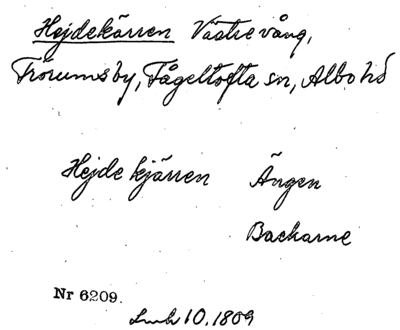 Hejdekärren Västre vång,
Frörumsby, Fågeltofta sn, Albo hd
Hejde kjärren Ängen
Backarne
Nr 6209.
Lmh 10. 1809